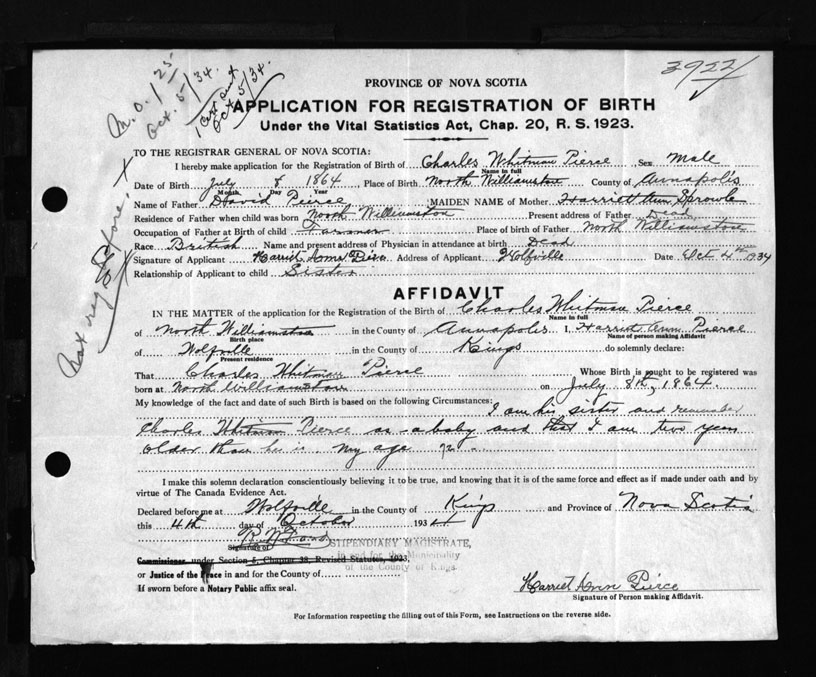 3922
M.O. 1/25
Oct. 5/34.
1 Cert out
Oct 5/34.
PROVINCE OF NOVA SCOTIA
APPLICATION FOR REGISTRATION OF BIRTH
Under the Vital Statistics Act, Chap. 20, R. S. 1923.
TO THE REGISTRAR GENERAL OF NOVA SCOTIA:
I hereby make application for the Registration of Birth of Charles Whitman Pierce Sex Male
Name in full
Date of Birth July 8 1864 Place of Birth North Williamston County of Annapolis
Month Day Year
Name of Father David Peirce MAIDEN NAME of Mother Harriett Ann Sprowl
Residence of Father when child was born North Williamston Present address of Father Dead
Occupation of Father at Birth of child Farmer Place of birth of Father North Williamston
Race British Name and present address of Physician in attendance at birth Dead
Signature of Applicant Harriet Ann Address of Applicant Wolfville Date Oct 4th 1934
Relationship of Applicant to child Sister
Not reg before X
AFFIDAVIT
IN THE MATTER of the application for the Registration of the Birth of Charles Whitman Pierce
Name in full
of North Williamston in the County of Annapolis I, Harriet Ann Pierce
Birth place Name of person making Affidavit
of Wolfville in the County of Kings do solemnly declare:
Present residence
That Charles Whitman Pierce Whose Birth is sought to be registered was
born at North Williamston on July 8th, 1864.
My knowledge of the fact and date of such Birth is based on the following Circumstances: I am his sister and remember
Charles Whitman Pierce as a baby and that I am two years
older than he is. My age 72
I make this solemn declaration conscientiously believing it to be true, and knowing that it is of the same force and effect as if made under oath and by
virtue of The Canada Evidence Act.
Declared before me at Wolfville in the County of Kings and Province of Nova Scotia
this 4th day of October 1934
STIPENDIARY MAGISTRATE,
Signature of in and for the Municipality
Commissioner under Section 5, Chapter 38, Revised Statutes, 1923,
of the County of Kings.
or Justice of the Peace in and for the County of
If sworn before a Notary Public affix seal.
Harriet Ann Pierce
Signature of Person making Affidavit.
For Information respecting the filling out of this Form, see Instructions on the reverse side.